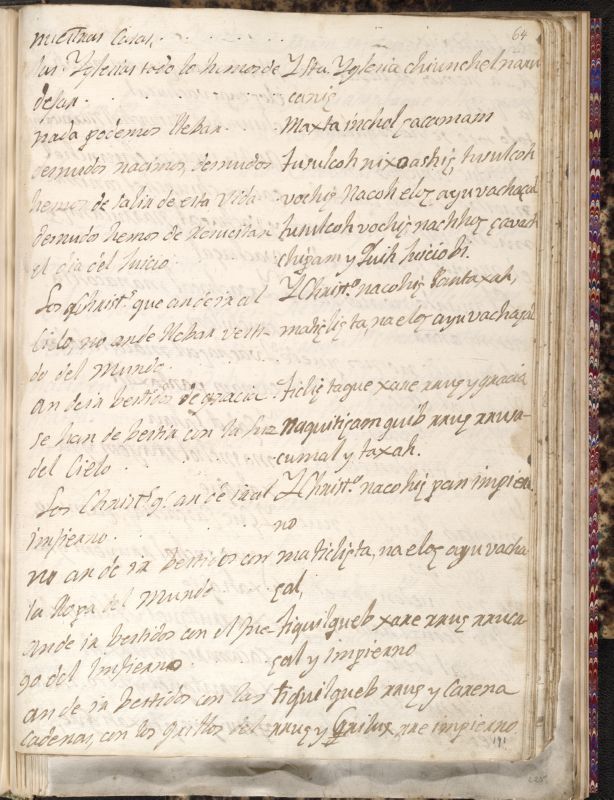 64
nuestras Casas,
las Yglesias todo lo hemos de Y sta. Yglesia chiunchel naru
dejar. canic
nada podemos llebar. Maxta inchol cacamam
desnudos nacimos, desnudos tusulcoh nixoashic, tusulcoh
hemos de salir de esta Vida vochic Nacoh eloc ayu vachacal
desnudo hemos de Resusitar tusulcoh vochic nachhoc cavach
el dia del Juicio. chicam y Quih Juicio bi.
Los Christ.s que an de ir al Y Christ.o nacohic Pantaxah,
Cielo no ande llebar vesti- maticlicta, na eloc ayu vachacal
do del Mundo.
an de ir bestidos de gracia ticlictaque xare rruc y gracia
se han de bestir con la luz naquiticam quib rruc rrusa-
del Cielo cumal y taxah.
Los Christ.s q.e an de ir al Y Christ.o nacohic pan impier-
infierno. no
no an de ir bestidos con maticlicta, na eloc ayu vacha
la Ropa del Mundo cal,
ande ir bestidos con el fue- tiquilqueb xare rruc rruca
go del Infierno cal y impierno
an de ir bestidos con las tiquilqueb rruc y Carena
Cadenas, con los grillos del rruc y Grilux rre impierno
191
225